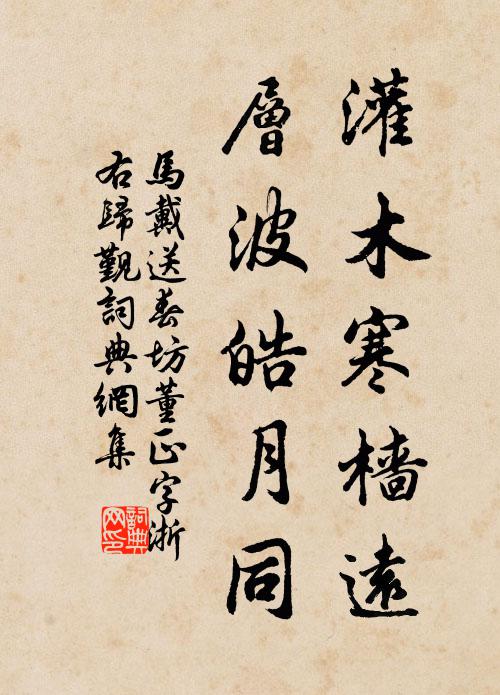 灌木寒檣遠
層波皓月同
馬戴送春坊董正字浙
右歸覲詞典網集
詞典網印